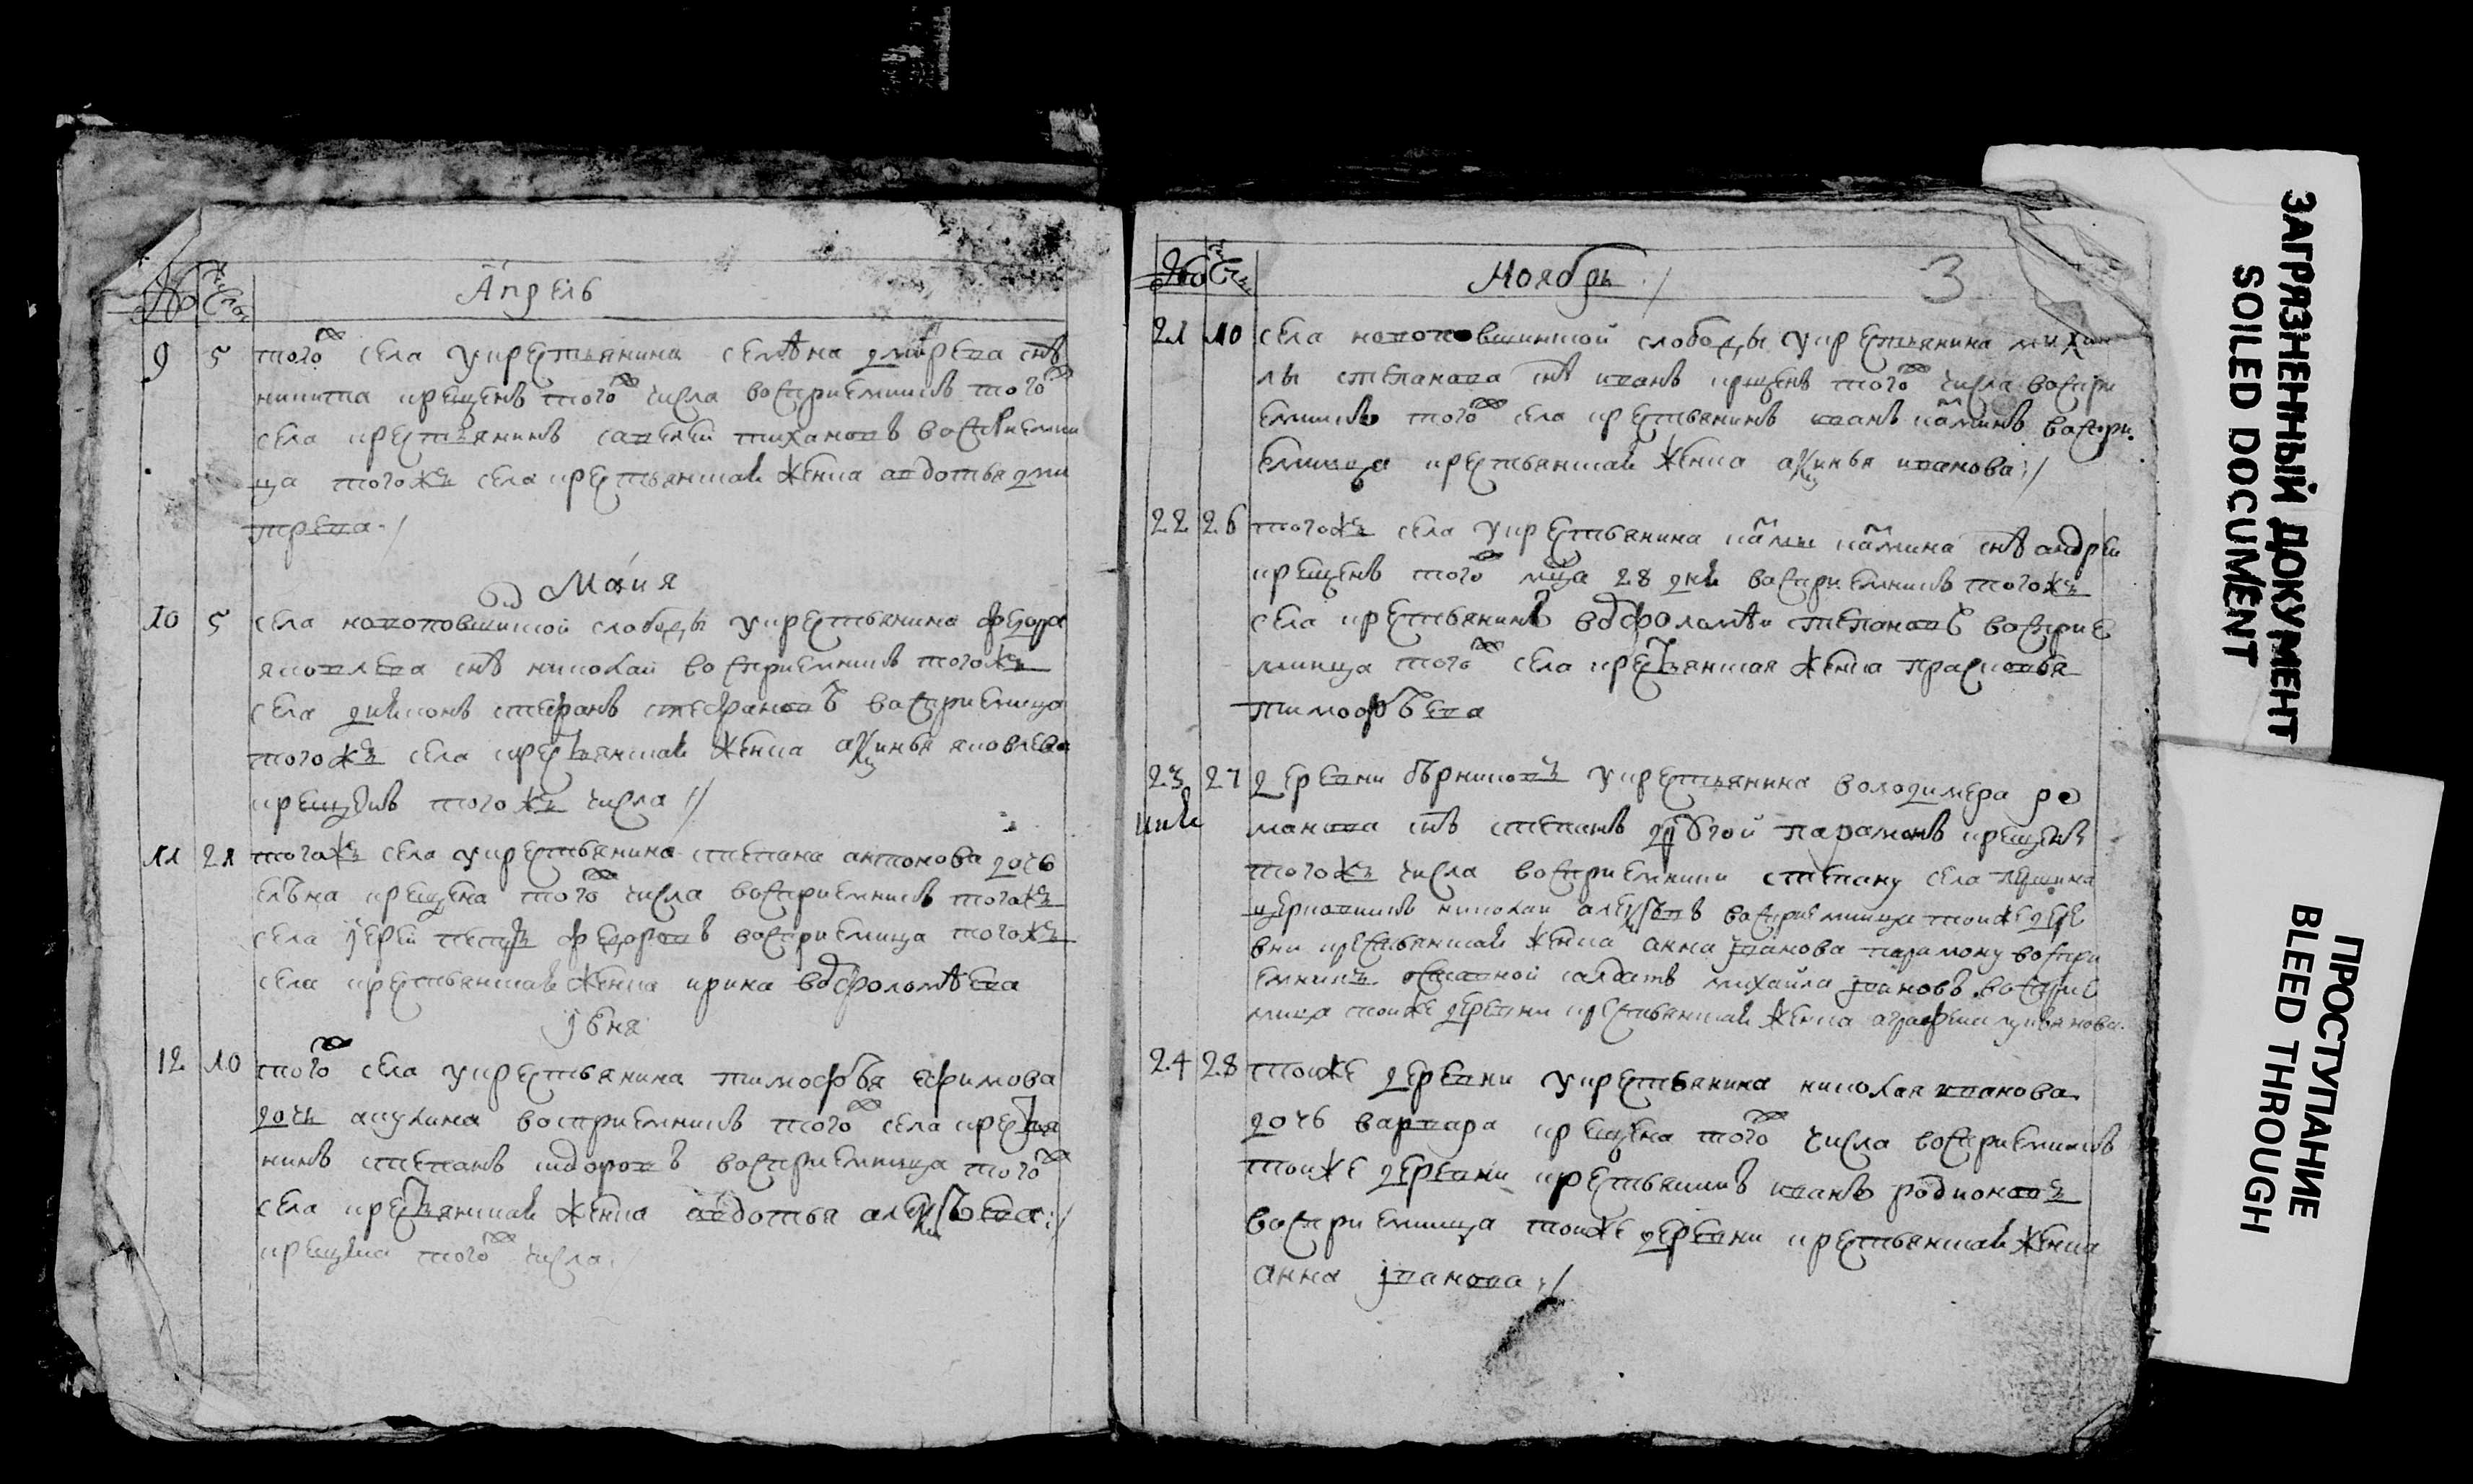 № число
Апрель
9 5 того ж села у крестьянина семѣна дмитрева снъ
никита крещенъ того ж числа восприемникъ того ж
села крестьянинъ савелей тихановъ восприемни
ца того же села крестьянская женка авдотья дми
трева
Маия
10 5 села новоповшинской слободы у крестьянина федора
яковлева снъ николай восприемникъ того же
села дияконъ стефанъ стефановъ восприемница
того же села крестьянская женка аксинья яковлева
крещенъ того же числа
11 21 того же села у крестьянина степана антонова дочь
елѣна крещена того ж числа восприемникъ того же
села іерей петръ федоровъ восприемница того же
села крестьянская женка ирина вафоломѣева
іюня
12 10 того ж села у крестьянина тимофѣя ефимова
дочь акулина восприемникъ того ж села крестья
нинъ степанъ сидоровъ восприемница того ж
села крестьянская женка авдотья алексѣева
крещена того ж числа
№ число
Ноябрь 3
21 10 села новоповшинской слободы у крестьянина михаи
лы степанова снъ иванъ крщенъ того ж числа воспри
емникъ того ж села крестьянинъ иванъ казминъ воспри
емница крестьянская женка аксинья иванова
22 26 того же села у крестьянина казмы казмина снъ андреи
крещенъ того ж мца 28 дня восприемникъ того же
села крестьянинъ вафоломѣи степановъ восприе
мница того ж села крестьянская женка прасковья
тимофѣева
23 27 деревни бърниковъ у крестьянина володимера ро
манова снъ степанъ другой парамонъ крещенъ
того же числа восприемники степану села
церковникъ николаи алексѣевъ восприемница тоиже дере
вни крестьянская женка анна іванова парамону воспри
емникъ отставной салдатъ михайла івановъ восприе
мница тоиже деревни крестьянская женка аграфена
24 28 тоиже деревни у крестьянина николая иванова
дочь варвара крещена того ж числа восприемникъ
тоиже деревни крестьянинъ иванъ родионовъ
восприемница тоиже деревни крестьянская женка
анна іванова
ЗАГРЯЗНЕННЫЙ ДОКУМЕНТ
SOILED DOCUMENT
ПРОСТУПАНИЕ
BLEED THROUGH